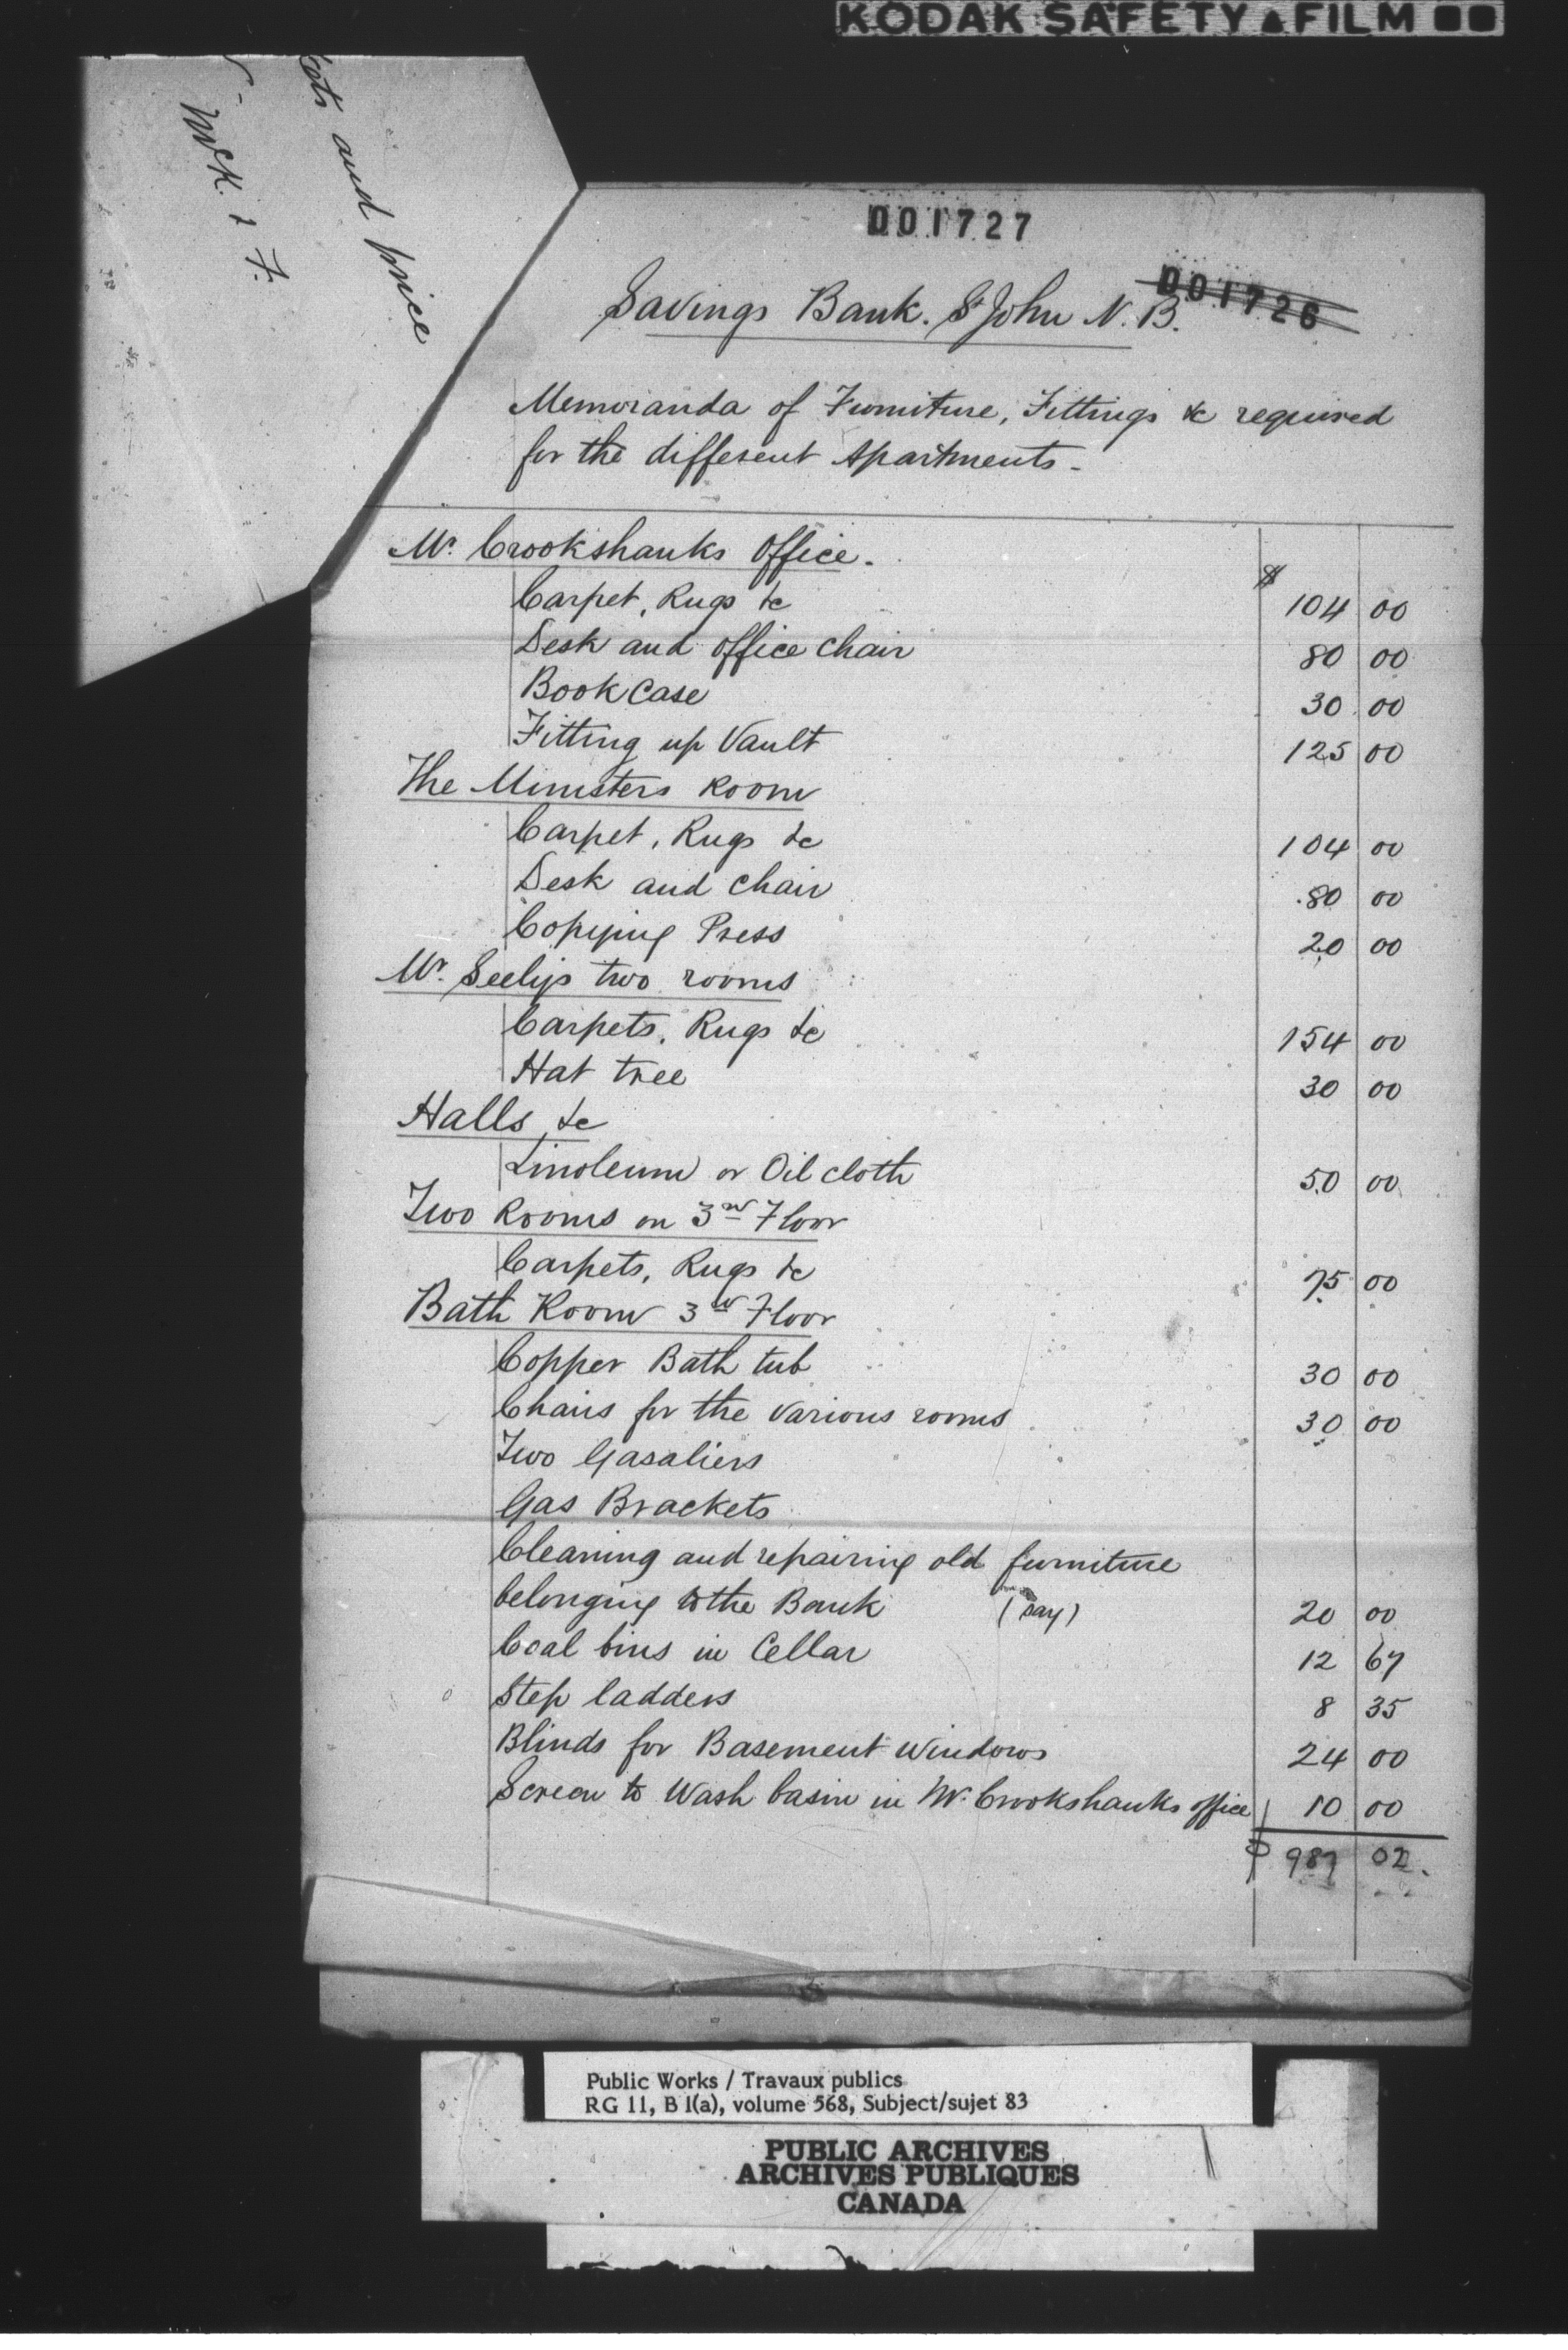 KODAK SAFETY FILM
and price
McK. & F.
001727
001726
Savings Bank. St John N. B.
Memoranda of Furniture, Fittings &c required
for the different Apartments -
Mr. Crookshanks Office.
$
Carpet, Rugs &c 104 00
Desk and office chair 80 00
Book Case 30 00
Fitting up Vault 125 00
The Ministers Room
Carpet, Rugs &c 104 00
Desk and chair 80 00
Copying Press 20 00
Mr. Seelys two rooms
Carpets, Rugs &c 154 00
Hat tree 30 00
Halls &c
Linoleum or Oil cloth 50 00
Two Rooms on 3rd Floor
Carpets, Rugs &c 75 00
Bath Room 3rd Floor
Copper Bath tub 30 00
Chairs for the various rooms 30 00
Two Gasaliers
Gas Brackets
Cleaning and repairing old furniture
belonging to the Bank (say) 20 00
Coal bins in Cellar 12 67
Step ladders 8 35
Blinds for Basement Windows 24 00
Screen to Wash basin in Mr. Crookshanks office 10 00
$ 987 02.
Public Works / Travaux publics
RG 11, B 1(a), volume 568, Subject/sujet 83
PUBLIC ARCHIVES
ARCHIVES PUBLIQUES
CANADA